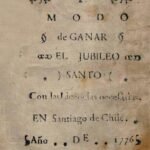 MODO
de GANAR
EL JUBILEO
SANTO
Con las Licencias necesarias
EN Santiago de Chile.
Año DE 1776